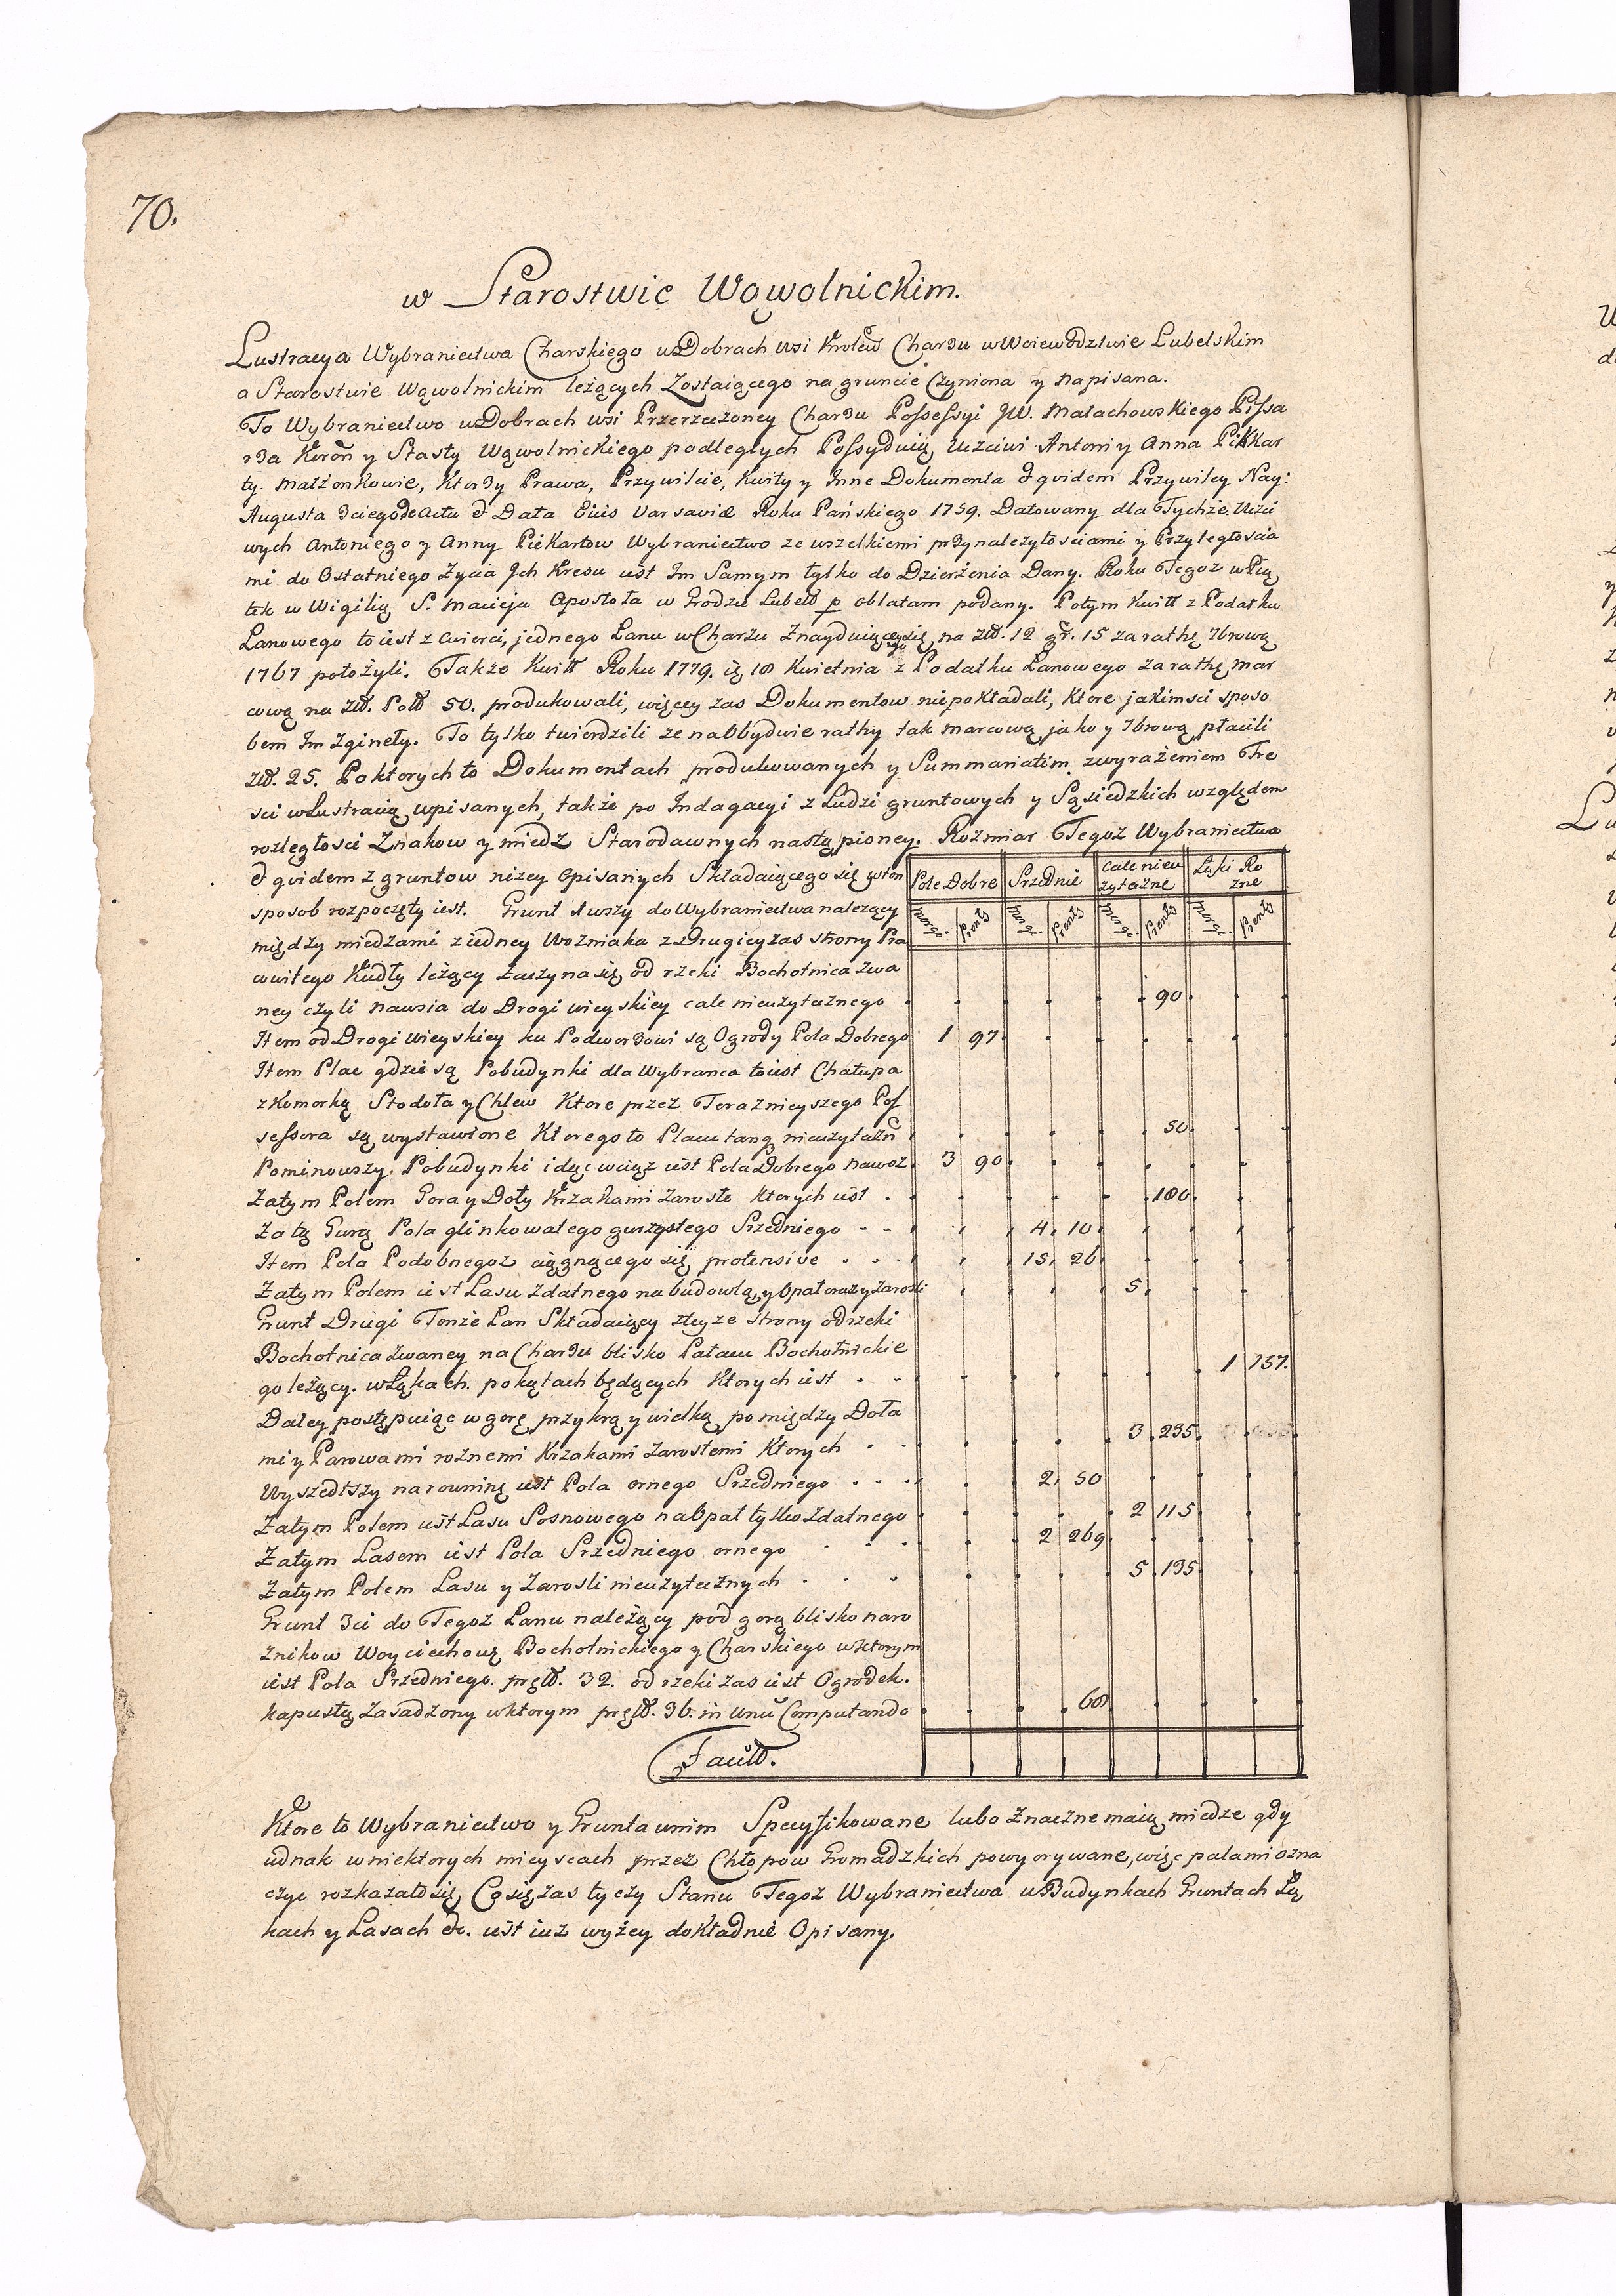 70.
w Starostwie Wąwolnickim.
Lustracya Wybraniectwa Charskiego w Dobrach wsi Krolew Charzu w Woiewodztwie Lubelskim
a Starostwie Wąwolnickim leżących Zostaiącego na gruncie Czyniona y napisana.
To Wybraniectwo w Dobrach wsi Przerzeczoney Charzu Possessyi JW. Małachowskiego Pissa
rza Koron y Stasty Wąwolnickiego podległych Possyduią Uczciwi Antoni y Anna Piekar
ty. Małżonkowie, Ktorzy Prawa, Przywileie, Kwity y Inne Dokumenta & qvidem Przywiley Nay:
Augusta 3ciego de Actu & Data Eius Varsaviæ Roku Pańskiego 1759. Datowany dla Tychże Uczci
wych Antoniego y Anny Piekartow Wybraniectwo ze wszelkiemi przynależytościami y Przyległoscia
mi do Ostatniego Życia Jch Kresu iest Im Samym tylko do Dzierżenia Dany. Roku Tegoz w Pią
tek w Wigilią S. Macieja Apostoła w Grodzie Lubell p oblatam podany. Potym Kwitt z Podatku
Łanowego to iest z Cwierci, jednego Łanu w Charzu Znayduiącego się na złł. 12 gr. 15 za rathę 7brową
1767 położyli. Także Kwitt Roku 1779. ię 18 Kwietnia z Podatku Łanowego za rathę mar
cową na złł. Poll 50. produkowali, więcey zas Dokumentow niepokładali, Ktore jakimsci sposo
bem Im Zgineły. To tylko twierdzili ze na obydwie rathy tak marcową jako y 7brową płacili
złł. 25. Po ktorych to Dokumentach produkowanych y Summariatim zwyrażeniem Tre
sci w Lustracią wpisanych, także po Indagacyi z Ludzi gruntowych y Sąsiedzkich względem
rozległosci Znakow y miedz Starodawnych nastąpioney. Rozmiar Tegoz Wybraniectwa
& qvidem z gruntow niżey Opisanych Składaiącego się w ton
Pole Dobre Srzednie Cale nieu żyteczne Łąki Ro żne
sposob rozpoczęty iest. Grunt 1wszy do Wybraniectwa nalezący
Morg. Pręty Morg. Pręty Morg. Pręty Morg. Pręty
między miedzami z iedney Wozniaka z Drugiey zas strony Pra
cwitego Kudły leżący zaczyna się od rzeki Bochotnica zwa
ney czyli nawsia do Drogi wieyskiey cale nieużytecznego 90
Item od Drogi wieyskiey ku Podworzowi są Ogrody Pola Dobrego 1 97
Item Plac gdzie są Pobudynki dla Wybranca to iest Chałupa
z Komorką Stodoła y Chlew Ktore przez Teraznieyszego Pos
sessora są wystawione Ktorego to Placu tanq nieużyteczn 50
Pominowszy. Pobudynki idąc wciąz iest Pola Dobrego nawoz 3 90
Zatym Polem Gora y Doły Krzakami zarosłe Ktorych iest 180
Za tą Gurą Pola glinkowatego gurzystego Srzedniego 4 10
Item Pola Podobnegoz ciągnącego się protensive 15 26
Zatym Polem iest Lasu Zdatnego na budowlą y Opał oraz y Zarosli 5
Grunt Drugi Tenże Łan Składaiący z teyze strony od rzeki
Bochotnica zwaney na Charzu blisko Pałacu Bochotnickie
go leżący. w Łąkach. po kątach będących Ktorych iest 1 157.
Daley postępuiąc w gorę przykrą y wielką pomiędzy Doła
mi y Parowami roznemi Krzakami zarosłemi Ktorych 3 235
Wyszedłszy na rowninę iest Pola ornego Srzedniego 2 50
Zatym Polem iest Lasu Sosnowego na Opał tylko Zdatnego 2 115
Zatym Lasem iest Pola Srzedniego ornego 2 269
Zatym Polem Lasu y Zarosli nieużytecznych 5 195
Grunt 3ci do Tegoz Łanu należący pod gorą blisko naro
żnikow Woyciechow Bochotnickiego y Charskiego w ktorym
iest Pola Srzedniego. pręll. 32. od rzeki zas iest Ogrodek.
kapustą zasadzony w ktorym pręll. 36. in unu Computando 68
Facitt.
Ktore to Wybraniectwo y Grunta w nim Specyfikowane lubo Znaczne maią miedze gdy
iednak w niektorych mieyscach przez Chłopow Gromadzkich powyorywane, więc palami ozna
czyc rozkazało się Co się zas tyczy Stanu Tegoz Wybraniectwa w Budynkach Gruntach Łą
kach y Lasach &c. iest iuz wyżey dokładnie Opisany.